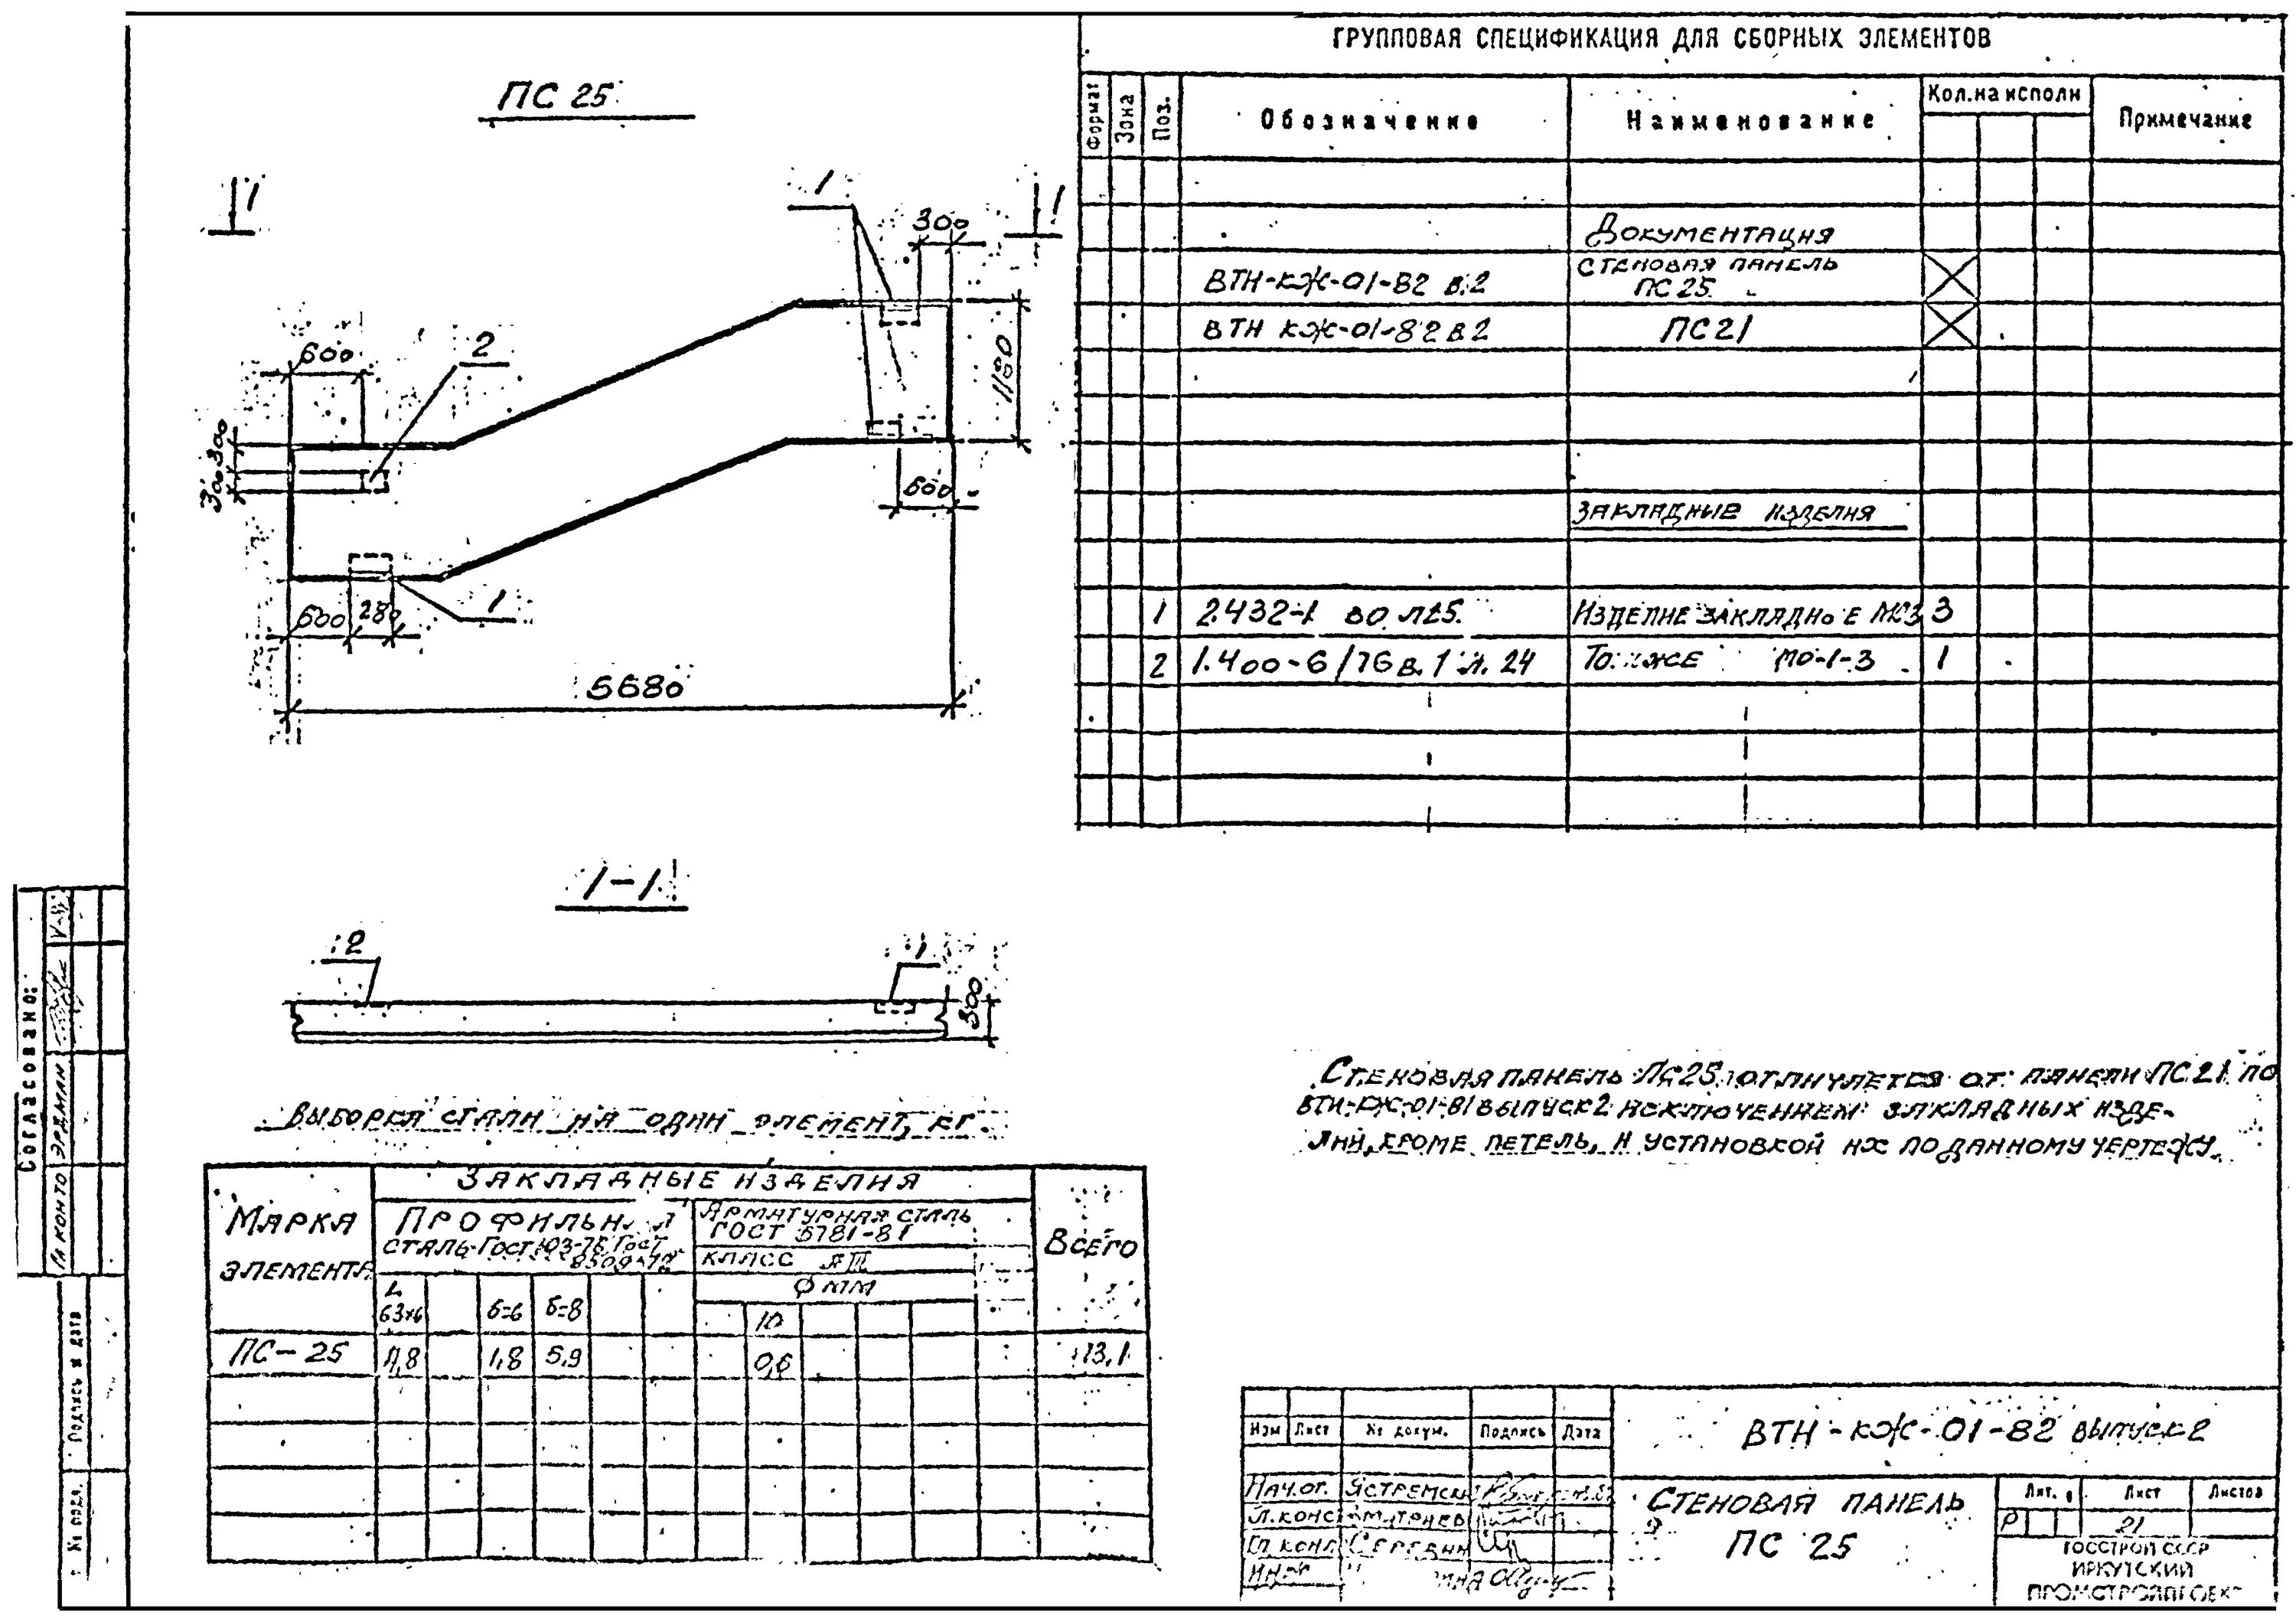 ПС 25
1
1
1
300
600
2
1180
300
300
600
600
280
1
5680
1-1
2
1
300
ВЫБОРКА СТАЛИ НА ОДИН ЭЛЕМЕНТ, КГ.
МАРКА ЭЛЕМЕНТА
ЗАКЛАДНЫЕ ИЗДЕЛИЯ
ВСЕГО
СТАЛЬ ГОСТ 103-76 ГОСТ
АРМАТУРНАЯ СТАЛЬ
ГОСТ 5781-81
КЛАСС АIII
Ф ММ
L 63х6
б=6
б=8
10
ПС-25
4,8
1,8
5,9
0,6
13,1
ГРУППОВАЯ СПЕЦИФИКАЦИЯ ДЛЯ СБОРНЫХ ЭЛЕМЕНТОВ
Формат
Зона
Поз.
Обозначение
Наименование
Кол.на исполн
Примечание
ДОКУМЕНТАЦИЯ
ВТН-КЖ-01-82 в.2
СТЕНОВАЯ ПАНЕЛЬ
ПС 25
ВТН КЖ-01-82 в 2
ПС 21
ЗАКЛАДНЫЕ ИЗДЕЛИЯ
1
2.432-1 в0 л25.
ИЗДЕЛИЕ ЗАКЛАДНОЕ МС3
3
2
1.400-6/76 в.1 л. 24
ТО ЖЕ МО-1-3
1
СТЕНОВАЯ ПАНЕЛЬ ПС25 ОТЛИЧАЕТСЯ ОТ ПАНЕЛИ ПС21 ПО
ВТН-КЖ-01-81 ВЫПУСК 2 ИСКЛЮЧЕНИЕМ ЗАКЛАДНЫХ ИЗДЕ-
ЛИЙ, КРОМЕ ПЕТЕЛЬ, И УСТАНОВКОЙ ИХ ПО ДАННОМУ ЧЕРТЕЖУ.
Изм Лист № докум. Подпись Дата
ВТН-КЖ-01-82 ВЫПУСК 2
НАЧ.ОТ.
СТЕНОВАЯ ПАНЕЛЬ
ПС 25
Лит.
Лист
Листов
Р
21
ГОССТРОЙ СССР
ИРКУТСКИЙ
ПРОМСТРОЙПРОЕКТ
Согласовано:
ЭРДМАН
Подпись и дата
№ подл.